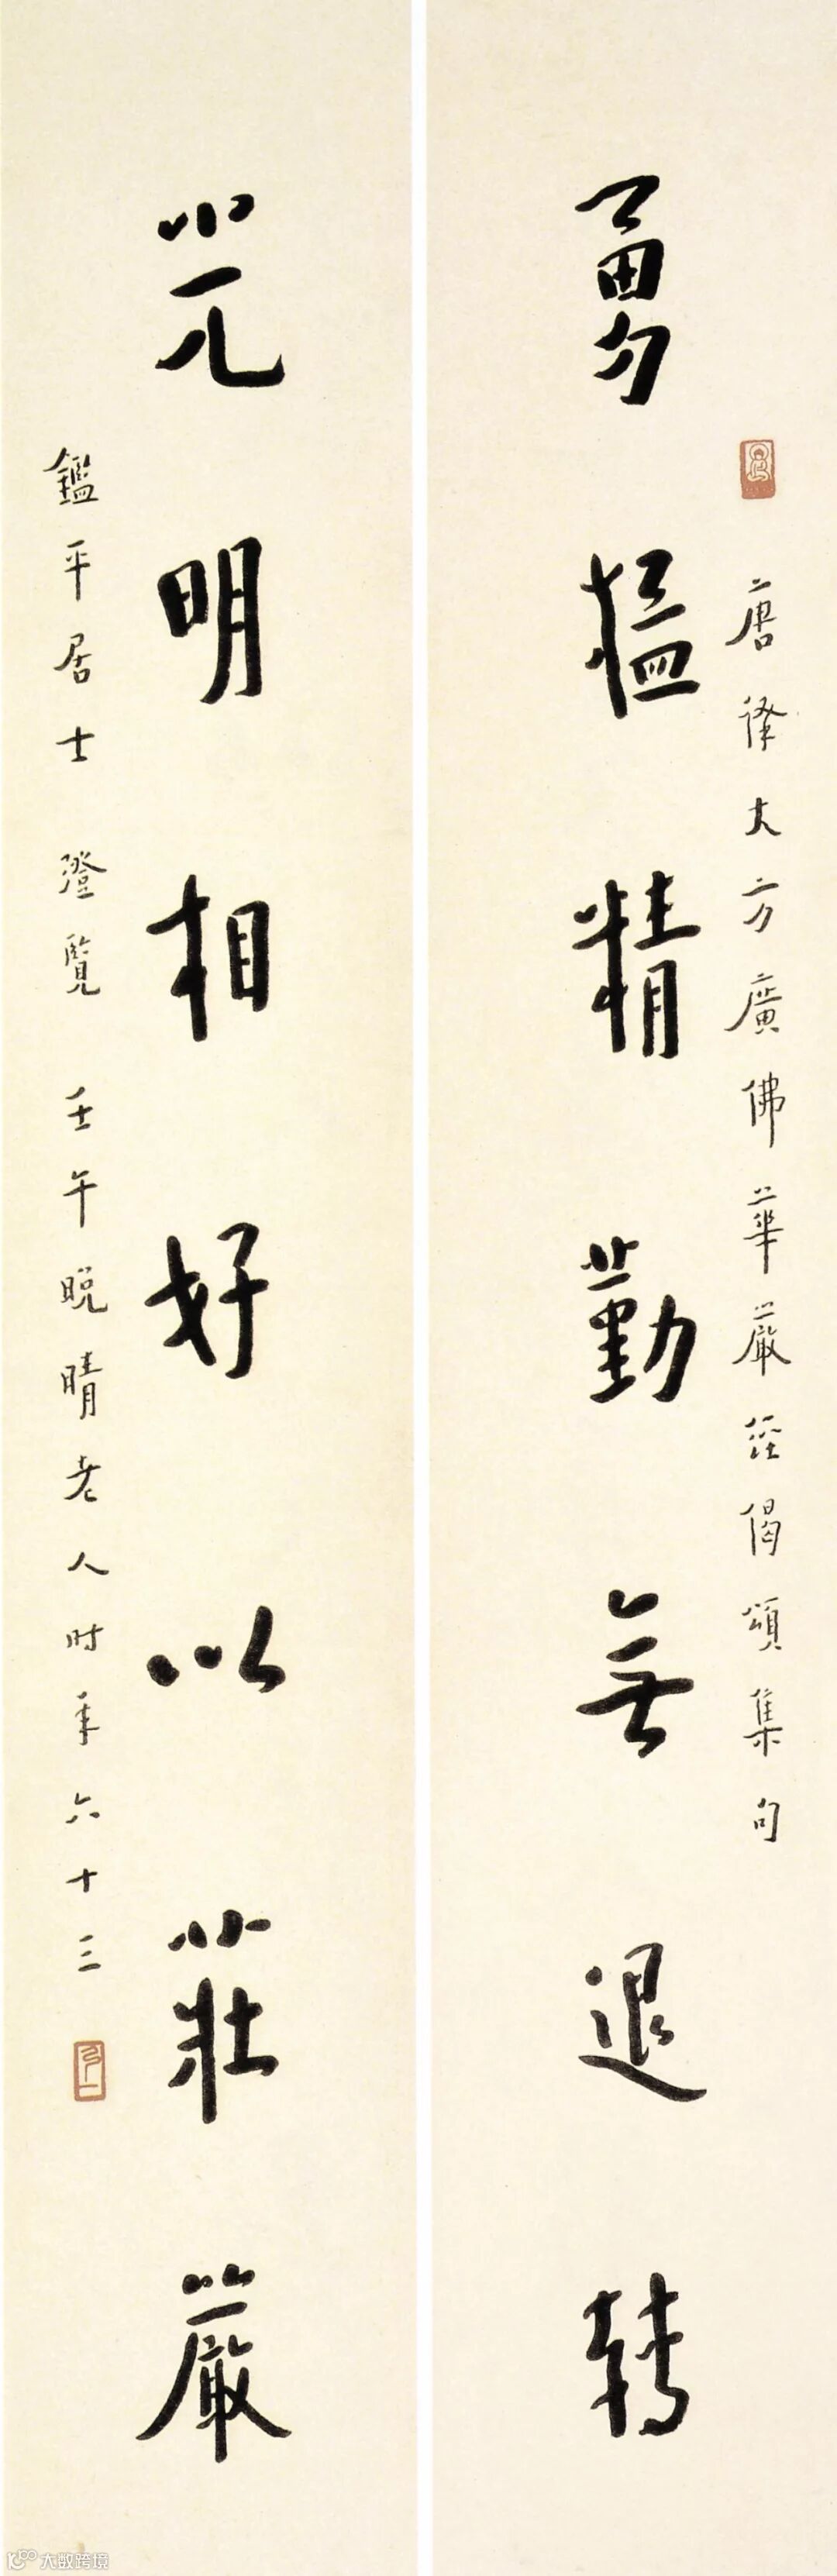 勇猛精勤無退轉
唐譯大方廣佛華嚴經偈頌集句
光明相好以莊嚴
鑑平居士 澄覽 壬午晚晴老人时年六十三
大数跨境